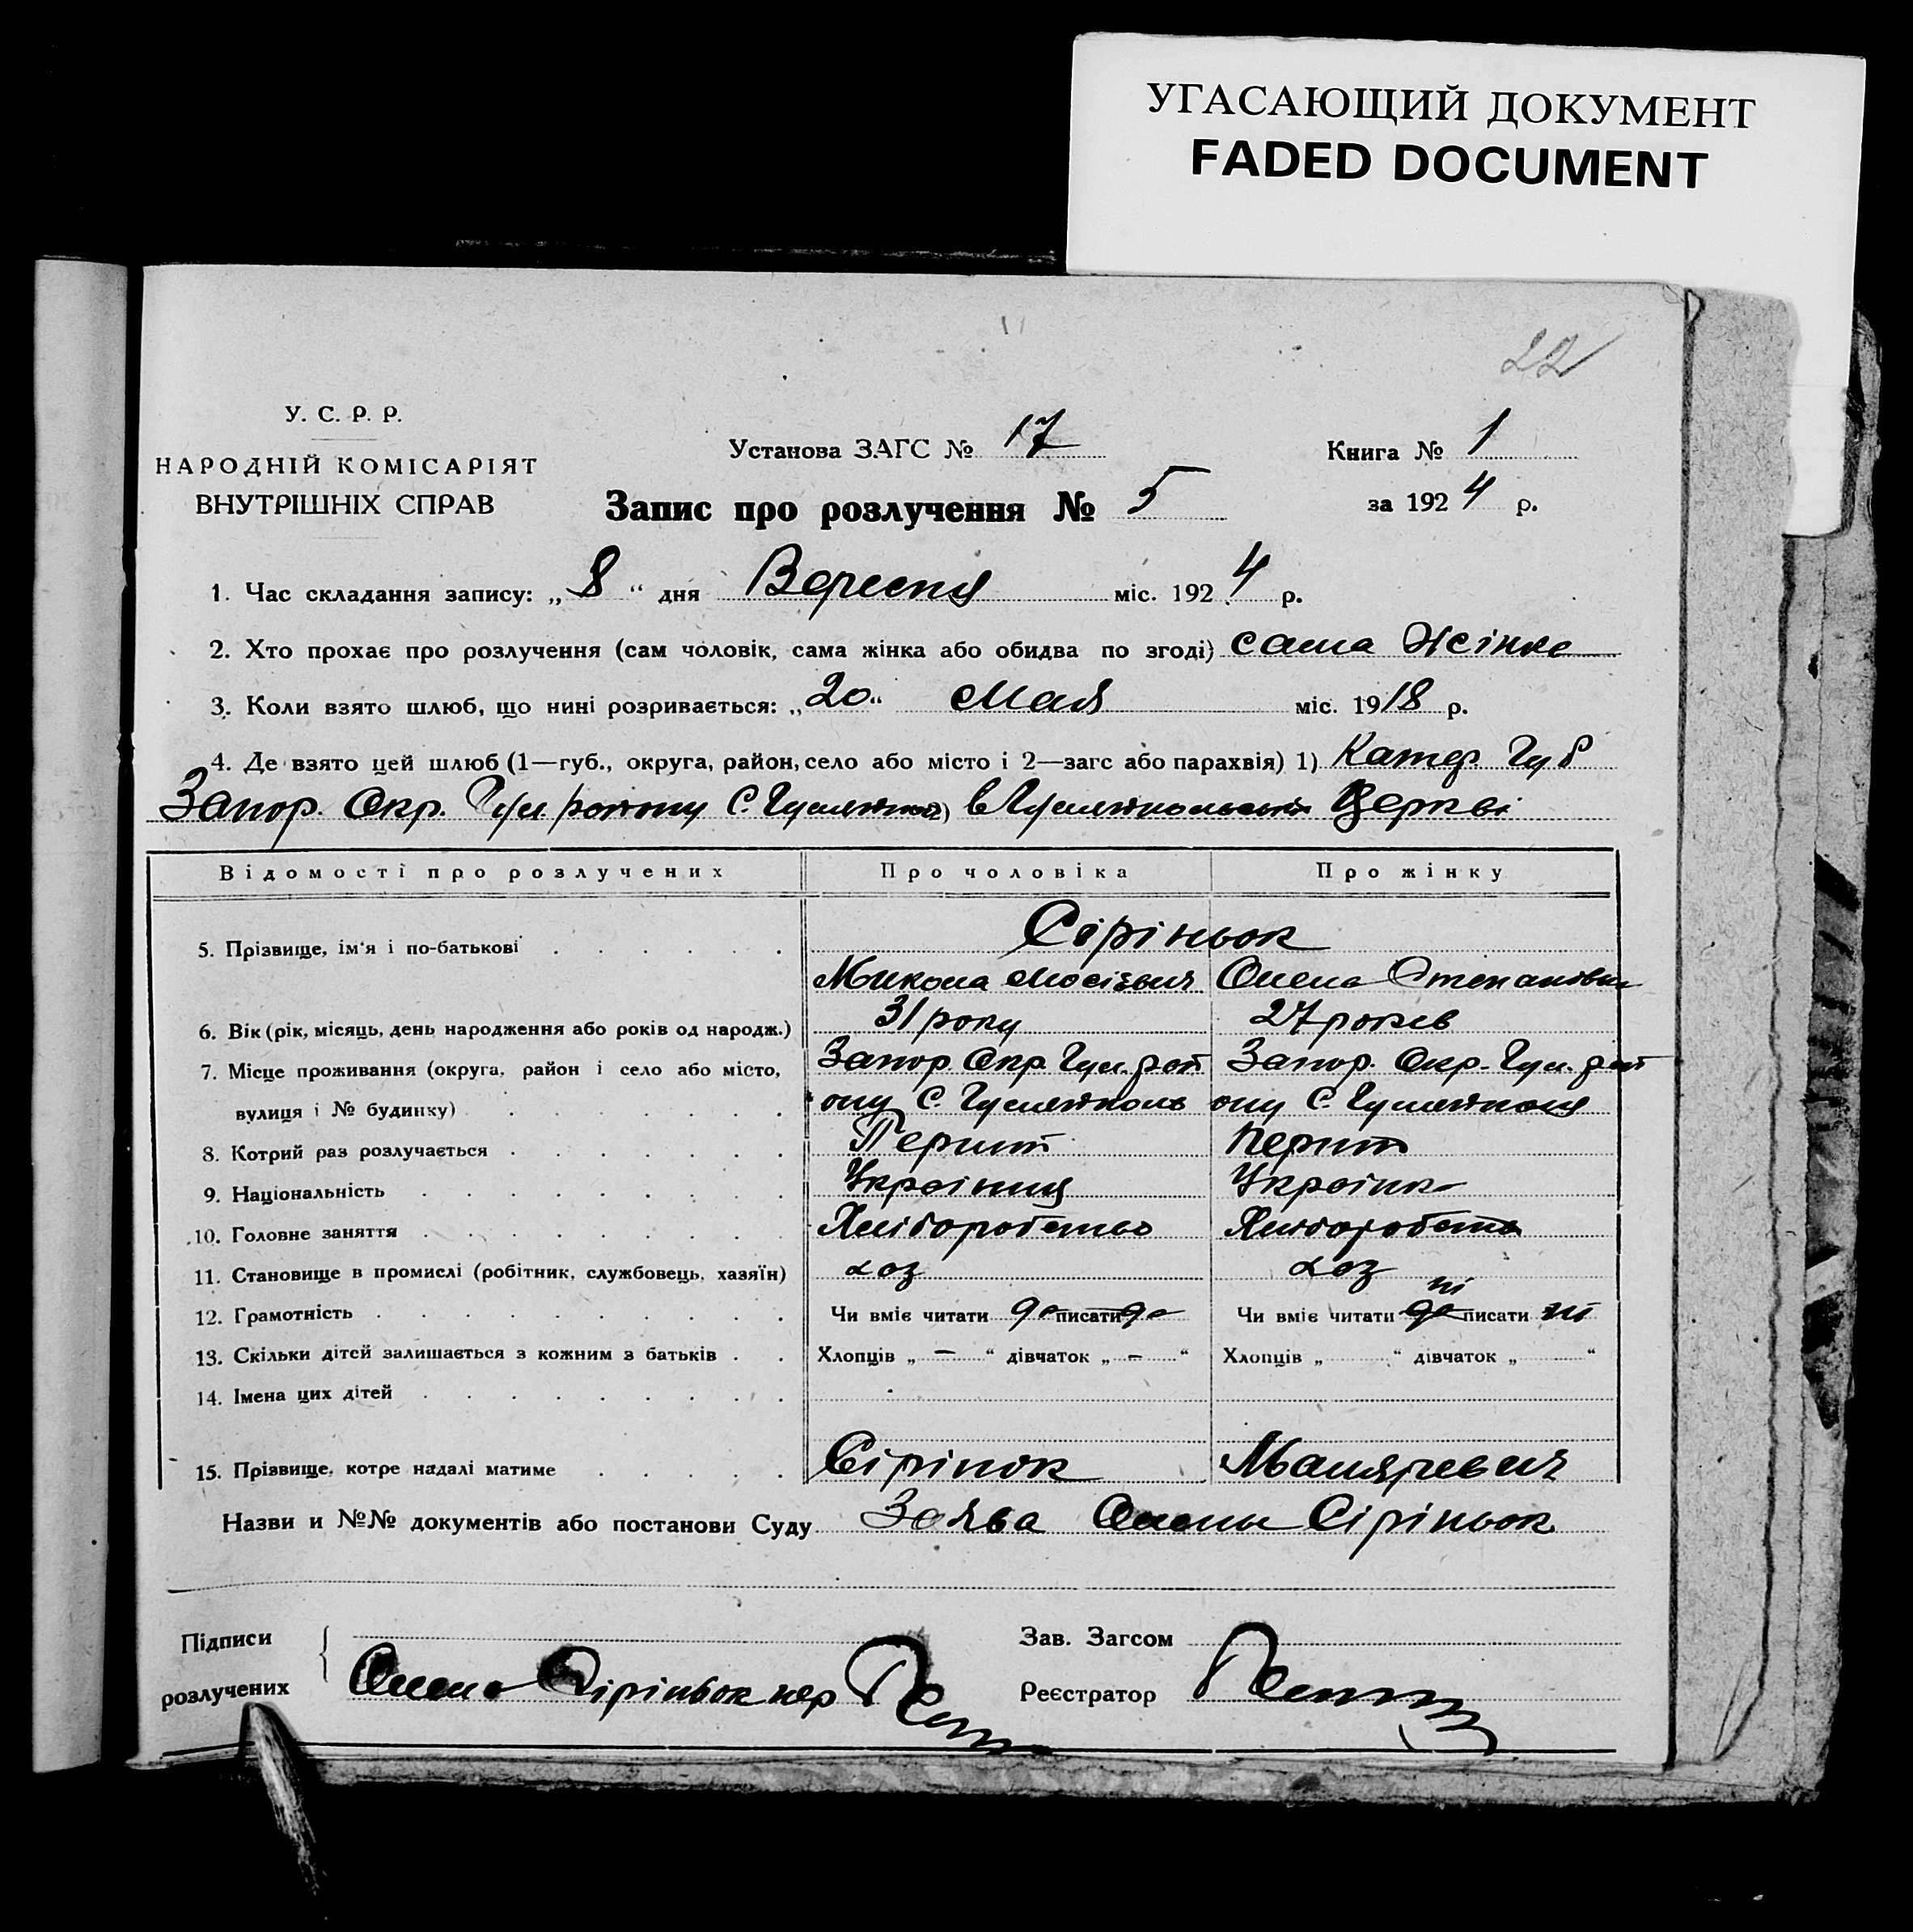 УГАСАЮЩИЙ ДОКУМЕНТ
FADED DOCUMENT
22
У. С. Р. Р.
НАРОДНІЙ КОМІСАРІЯТ
ВНУТРІШНІХ СПРАВ
Установа ЗАГС № 17
Книга № 1
Запис про розлучення № 5
за 1924 р.
1. Час складання запису: „8“ дня Вересня міс. 1924 р.
2. Хто прохає про розлучення (сам чоловік, сама жінка або обидва по згоді) сама Жінка
3. Коли взято шлюб, що нині розривається: „20“ Мая міс. 1918 р.
4. Де взято цей шлюб (1—губ., округа, район, село або місто і 2—загс або парахвія) 1) Катер. Губ
Запор. Окр. Гул. району С. Гуляйполе 2) в Гуляйпольській Церкві
Відомості про розлучених
Про чоловіка
Про жінку
5. Прізвище, ім'я і по-батькові
Сіріньок
Микола Мосієвич
Олена Степановна
6. Вік (рік, місяць, день народження або років од народж.) 31 року
27 років
7. Місце проживання (округа, район і село або місто, Запор. Окр. Гул. рай
Запор. Окр. Гул. рай
вулиця і № будинку) ону С. Гуляйполь
ону С. Гуляйполя
8. Котрий раз розлучається Перший
перший
9. Національність Українця
Українка
10. Головне заняття Хліборобство
Хліборобство
11. Становище в промислі (робітник, службовець, хазяїн) хоз
хоз
12. Грамотність Чи вміє читати да писати да
Чи вміє читати ні писати ні
13. Скільки дітей залишається з кожним з батьків . . Хлопців „ — “ дівчаток „ — “
Хлопців „ “ дівчаток „ “
14. Імена цих дітей
15. Прізвище, котре надалі матиме Сірінок
Маляревич
Назви и №№ документів або постанови Суду Заява Олены Сіріньок
Підписи
розлучених
Олена Сіріньок нер
Зав. Загсом
Реєстратор